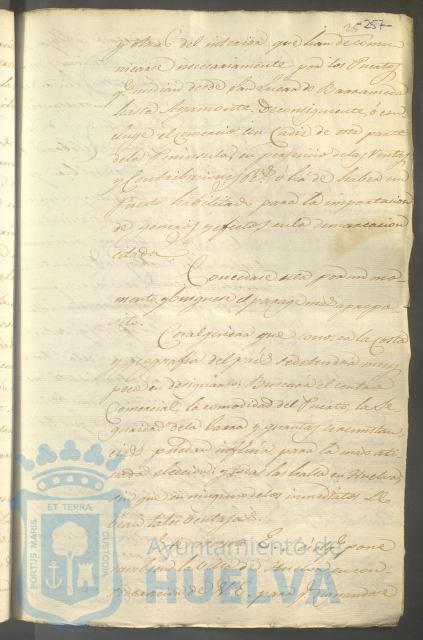 25 -257-
y otros del interior que han de comu-
nicarse necesariamente por los Puertos
q.e median desde San Lucar de Barrameda
hasta Ayamonte. De consiguiente, ó con-
cluye el Comercio con Cadiz de esta parte
de la Peninsula, en perjuicio de las Rentas
y Contribuciones R.s, ó ha de haber un
Puerto habilitado para la importacion
de generos y efectos en la demarcacion
citada.
Concedase esta por un mo-
mento, y busquese el parage mas aproposi-
to.
Cualquiera que conozca la Costa
y geografia del pais se detendrá muy
poco en designarlo. Buscará el centro
Comercial, la comodidad del Puerto, la Se-
guridad de la barra y quantas circunstan-
cias puedan influir para la mas ati-
nada eleccion; y todas las halla en Huelva
sin que en ninguno de los inmediatos se
tales ventajas.
pone
la Villa de Huelva en con-
sideracion de V.E. para
PORTUS MARIS
ET TERRÆ
CUSTODIA
Ayuntamiento de
HUELVA